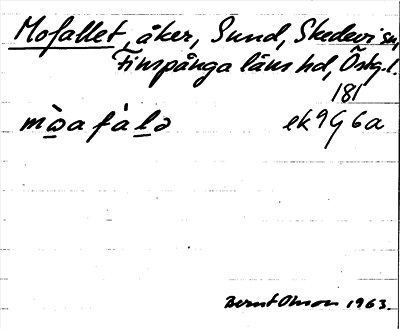 Mofallet, åker, Sund, Skedevi sn,
Finspånga läns hd, Östg.l.
181
mò̱a fàḻə ek 9 G 6 a
Bernt Olsson 1963.